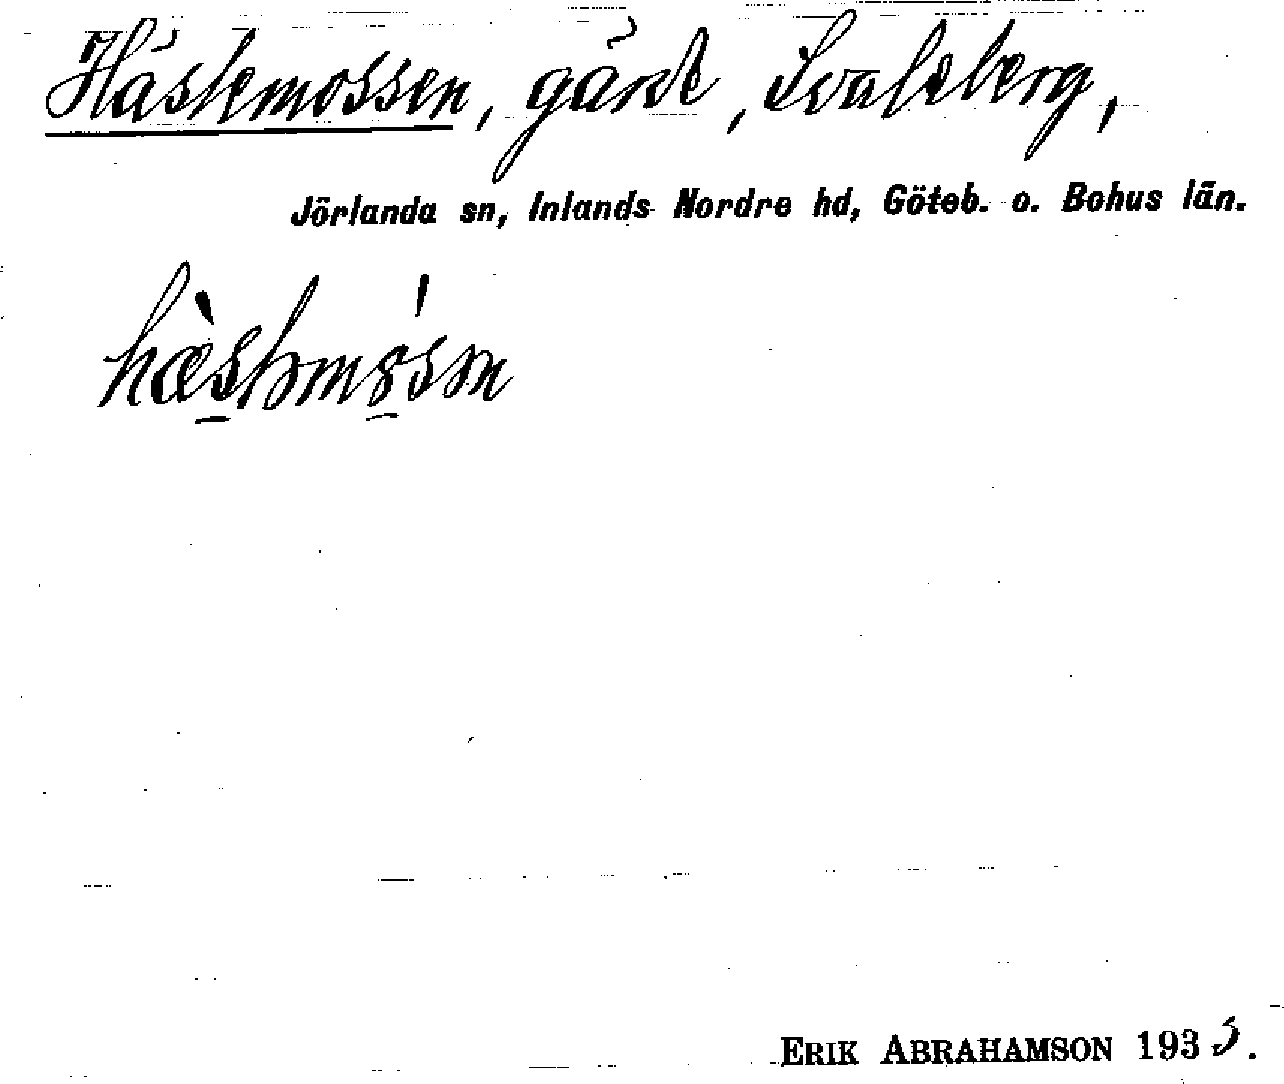 Hästemossen, gård, Svaleberg,
Jörlanda sn, Inlands Nordre hd, Göteb. o. Bohus län.
ERIK ABRAHAMSON 1933.